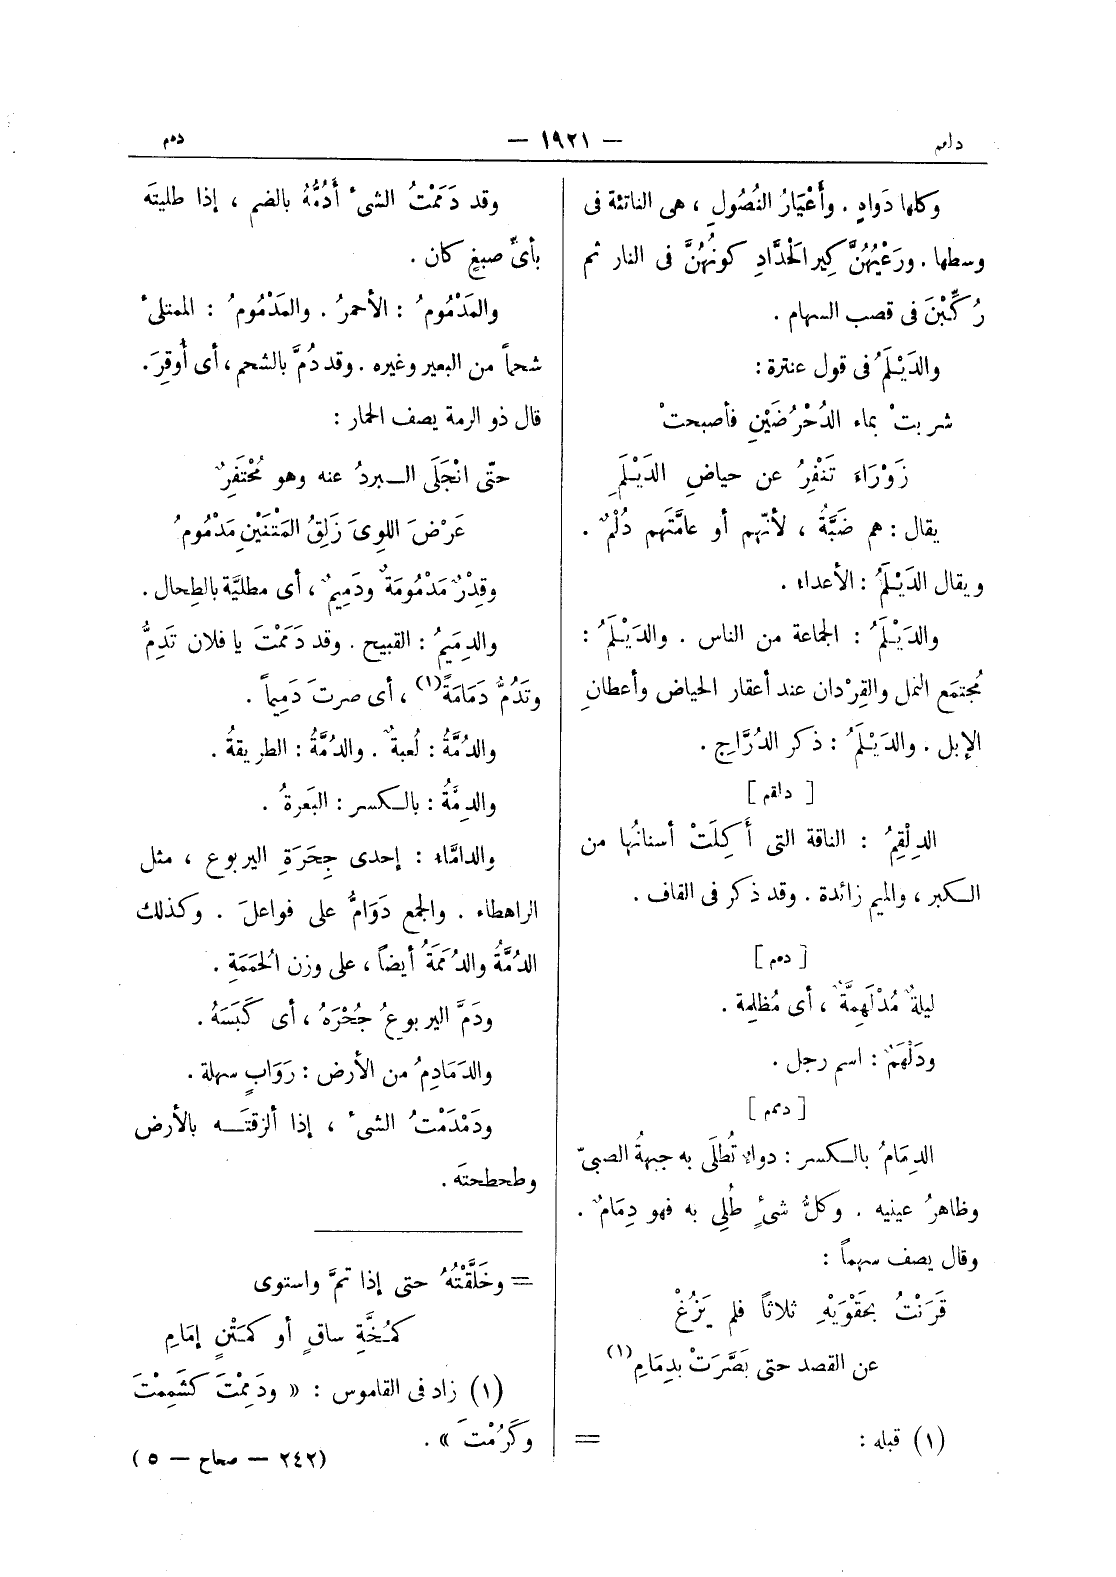 دلم
— ١٩٢١ —
دمم
وكلها دَوادٍ . وأَعْيَارُ النُصُولِ ، هى الناتئة فى
وسطها . ورَعْيُهُنَّ كِير الحْدَّادِ كونُهُنَّ فى النار ثم
رُكِّبْنَ فى قصب السهام .
والدَيْلَمُ فى قول عنترة :
شربتْ بماء الدُحْرُضَيْنِ فأصبحتْ
زَوْرَاءَ تَنْفِرُ عن حياضِ الدَيْلَمِ
يقال : هم ضَبَّةُ ، لأنّهم أو عامَّتَهم دُلْمٌ .
ويقال الدَيْلَمُ : الأعداء .
والدَيْلَمُ : الجماعة من الناس . والدَيْلَمُ :
مُجتمَع النمل والقِرْدان عند أعقار الحياض وأعطانِ
الإبل . والدَيْلَمُ : ذكر الدُرَّاجِ .
[ دلقم ]
الدِلْقِمُ : الناقة التى أُكِلَتْ أسنانُها من
الكبر ، والميم زائدة . وقد ذكر فى القاف .
[ دهم ]
ليلةٌ مُدْلَهِمَّةٌ ، أى مُظلِمة .
ودَلْهَمٌ : اسم رجل .
[ دمم ]
الدِمَامُ بالكسر : دواء تُطلَى به جبهةُ الصبىّ
وظاهرُ عينيه . وكلُّ شىءٍ طُلِى به فهو دِمَامٌ .
وقال يصف سهماً :
قَرَنْتُ بحَقْوَيْهِ ثلاثاً فلم يَزُغْ
عن القصد حتى بَصَّرَتْ بدِمَامِ (١)
(١) قبله :
=
وقد دَمَمْتُ الشىءَ أَدُمُّهُ بالضم ، إذا طليتَه
بأىِّ صبغٍ كان .
والمَدْمُومُ : الأحمرُ . والمَدْمُومُ : الممتلىء
شحماً من البعير وغيره . وقد دُمَّ بالشحم ، أى أُوقِرَ .
قال ذو الرمة يصف الحمار :
حتّى انْجَلَى البردُ عنه وهو مُحْتَفِرٌ
عَرْضَ اللوِىَ زَلِقُ المَتْنَيْنِ مَدْمُومُ
وقِدْرٌ مَدْمُومَةٌ ودَمِيمٌ ، أى مطليَّة بالطِحال .
والدِمَيمُ : القبيح . وقد دَمَمْتَ يا فلان تَدِمُّ
وتَدُمُّ دَمَامَةً (١) ، أى صرتَ دَمِيماً .
والدُمَّةُ : لُعبةٌ . والدُمَّةُ : الطريقةُ .
والدِمَّةُ : بالكسر : البَعرةُ .
والدامَّاء : إحدى جِحَرَةِ اليربوع ، مثل
الراهطاء . والجمع دَوَامُّ على فواعلَ . وكذلك
الدُمَّةُ والدُمَمَةُ أيضاً ، على وزن الحُمَمَةِ .
ودَمَّ اليربوعُ جُحْرَهُ ، أى كَبَسَهُ .
والدَمَادِمُ من الأرض : رَوَابٍ سهلة .
ودَمْدَمْتُ الشىءَ ، إذا ألزقتَه بالأرض
وطحطحتَه .
= وخَلَّقْتُهُ حتى إذا تمَّ واستوى
كمُخَّةِ ساقٍ أو كمَتْنِ إمَامِ
(١) زاد فى القاموس : « ودَمِمْتَ كشَمِمْتَ
وكَرُمْتَ » .
(٢٤٢ — صحاح — ٥ )